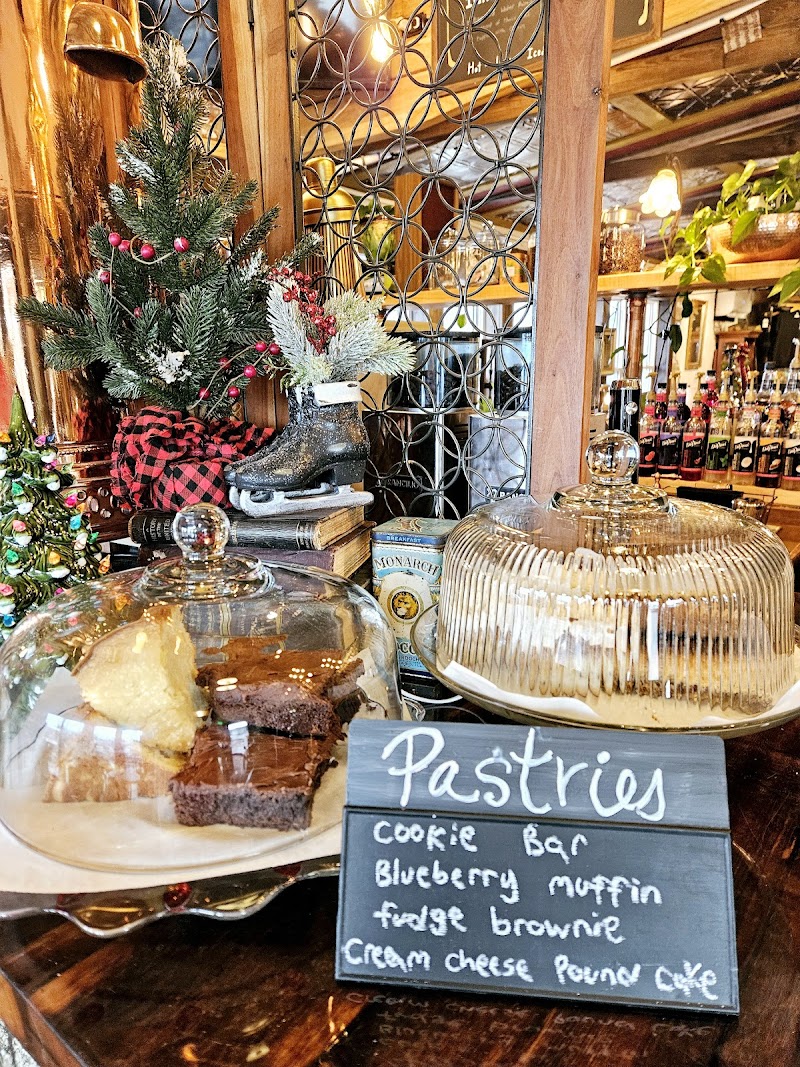 Hot
BREAKFAST
MONARCH
Pastries
Cookie Bar
Blueberry muffin
fudge brownie
Cream cheese Pound Cake